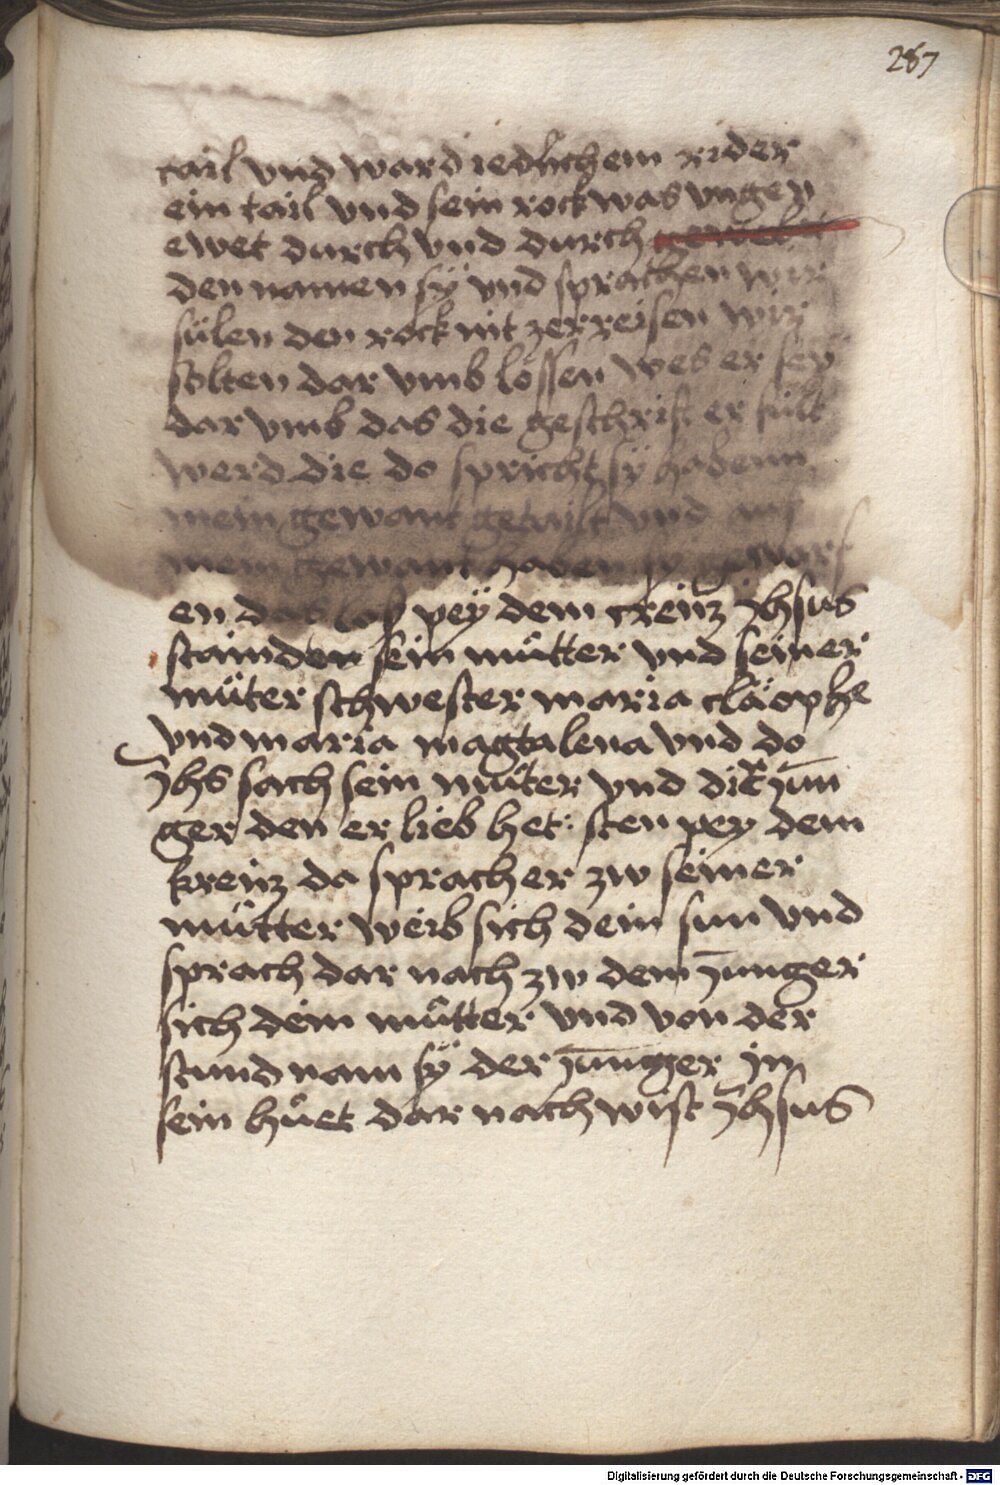 267
tail vnd ward iedlichem rider
ein tail vnd sein rock was vngen
ewet durch vnd durch
den namen sÿ vnd sprachen wir
sülen den rock nit zerreisen wir
solten dar vmb lossen wes er seÿ
dar vmb das die geschrift er fült
werd die do spricht sÿ habenn
mein gewant getailt vnd auf
mein gewant haben sy geworf
en das los peÿ dem creinz jhsus
stainden sein muͤtter vnd seiner
müter schwester maria cläophe
vnd maria magtalena vnd do
jhs sach sein muͤter vnd die jūn
ger den er lieb het: sten pey dem
kreinz da sprach er zw seiner
muͤtter weib sich dein sun vnd
sprach dar nach zw dem junger
sich dein muͤtter vnd von der
stund nam sÿ der junger in
sein huͤet dar nach wist jhsus
Digitalisierung gefördert durch die Deutsche Forschungsgemeinschaft - DFG